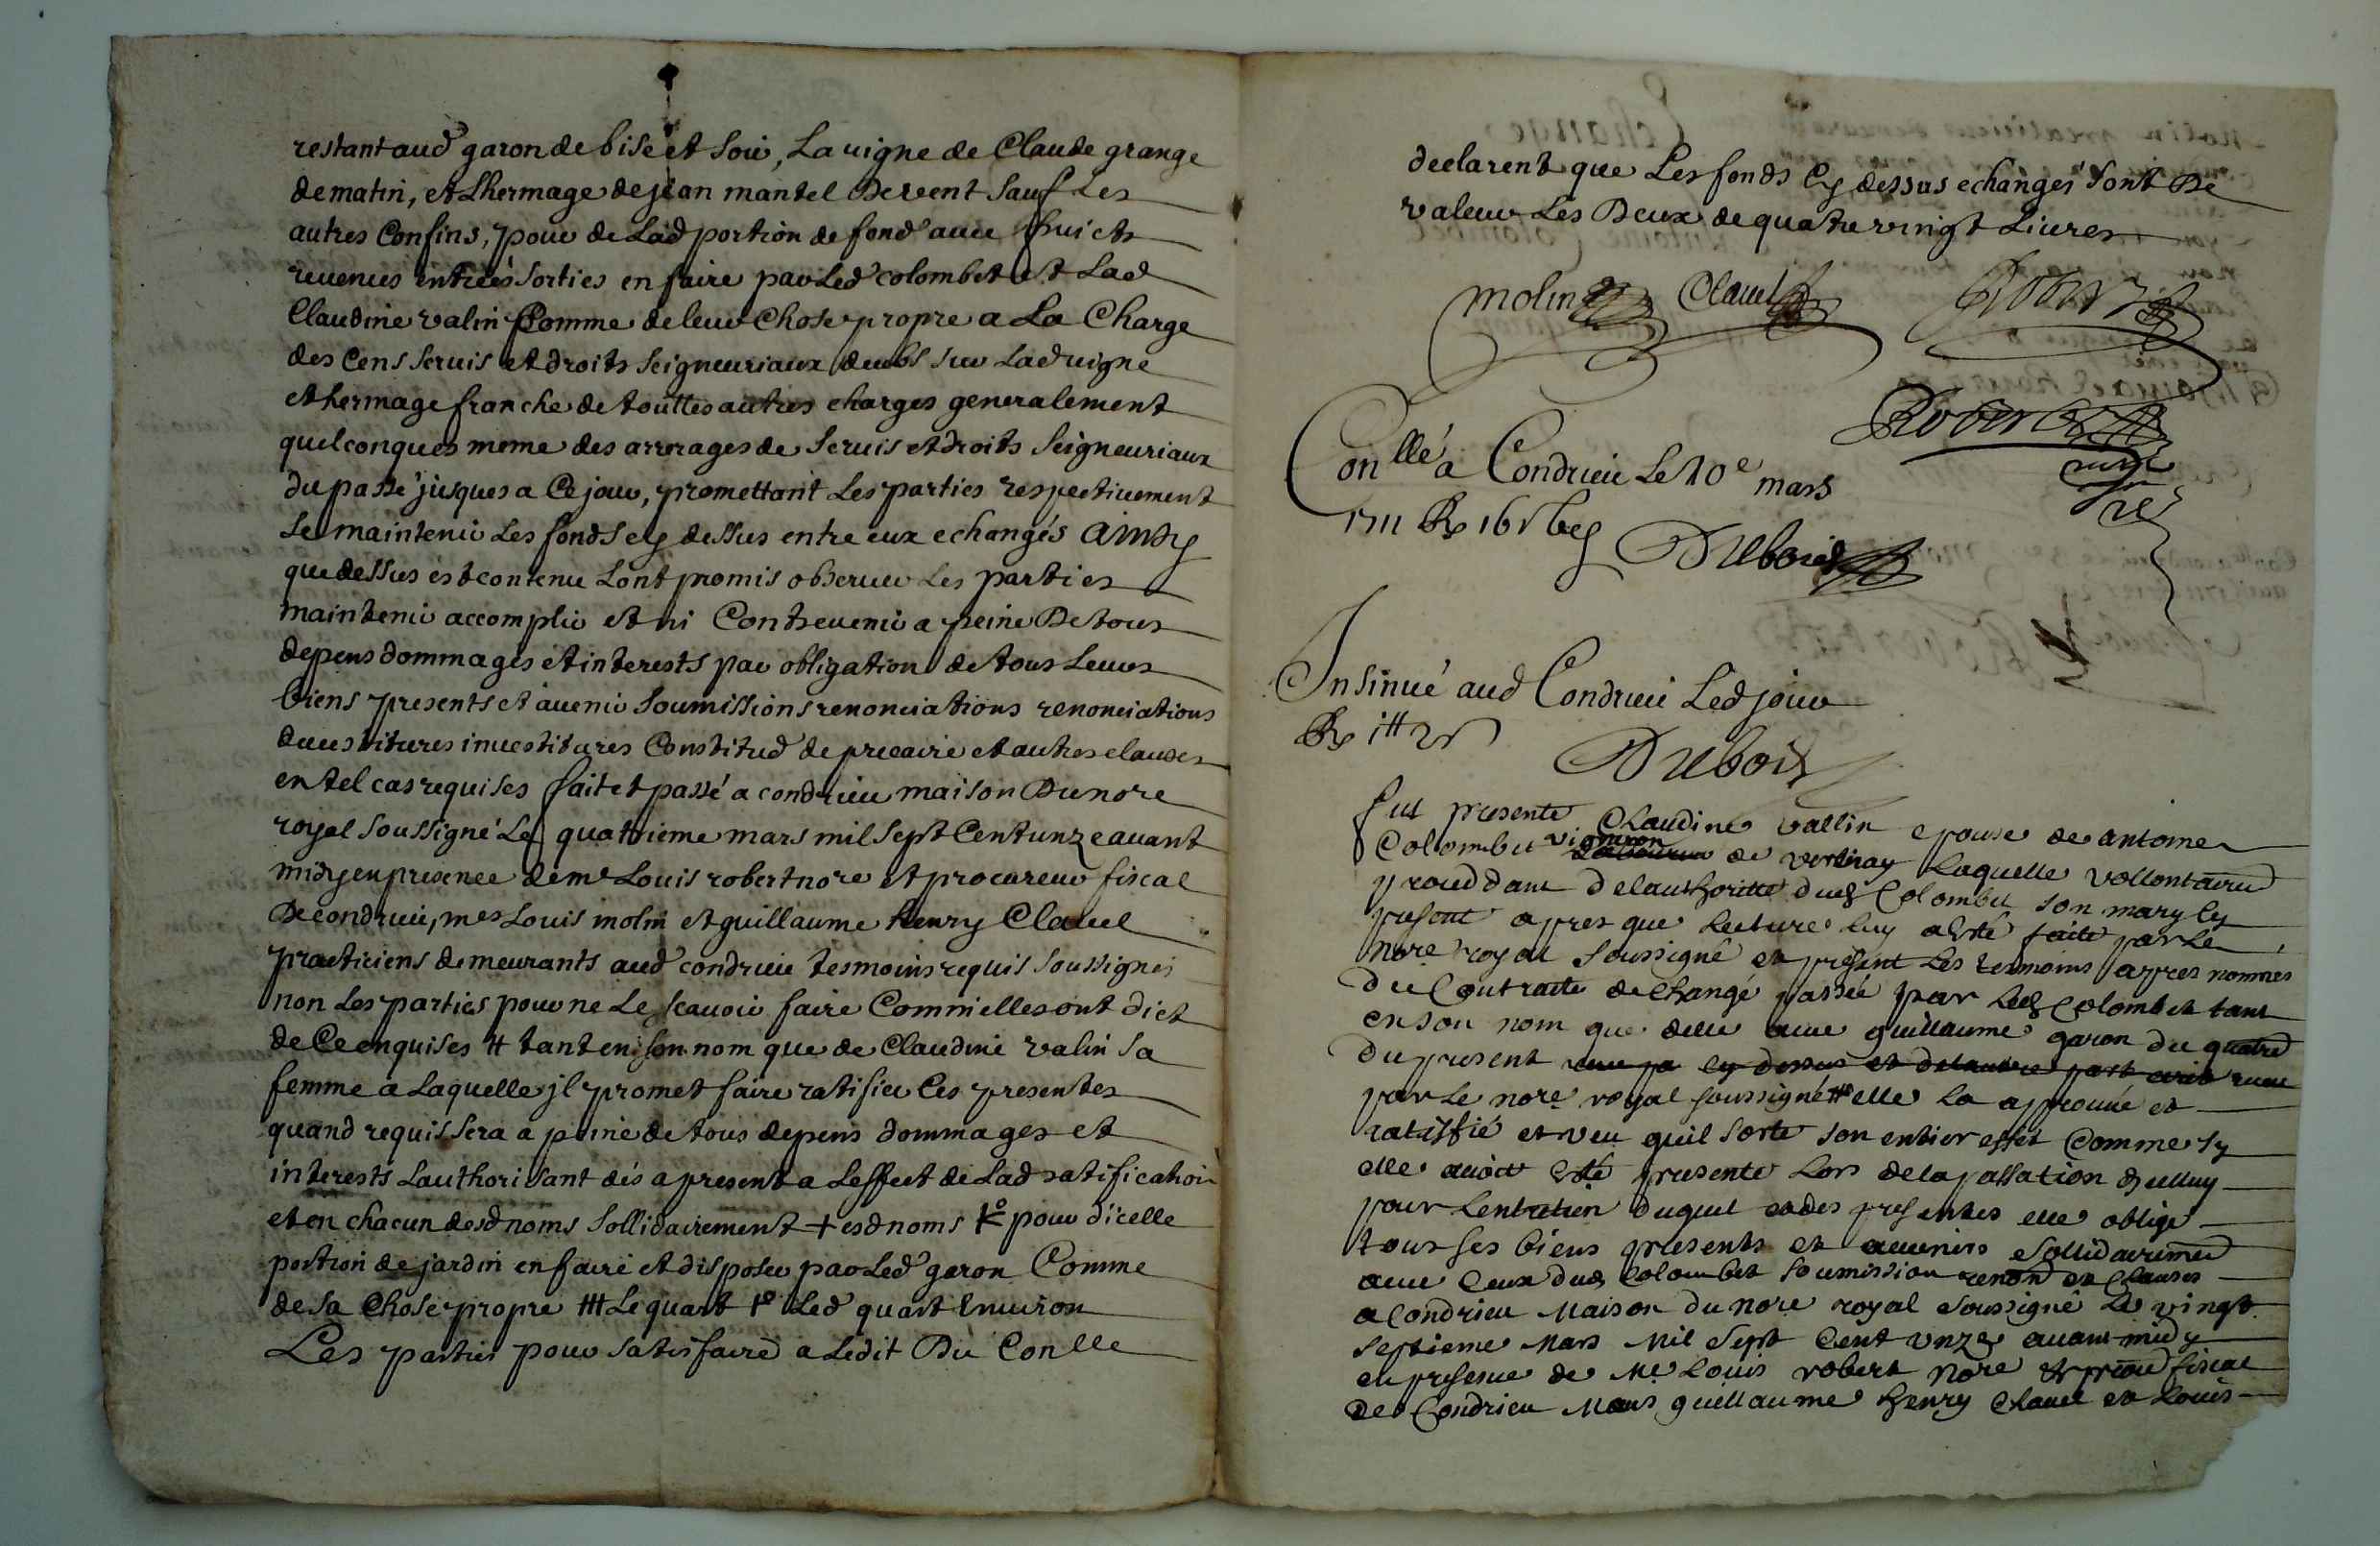 restant aud garon de bise et soir, La vigne de Claude grange
de matin, et Lhermage de jean mantel De vent Sauf Les
autres Confins, pour de Lad portion de fond avec fruicts
revenues entrées Sorties en faire par Led colombet et Lad
Claudine valin Comme de leur Chose propre a La Charge
des Cens Servis et droits Seigneuriaux deubs sur Lad vigne
et hermage franche de touttes autres charges generalement
quelconques meme des arrerages de Servis et droits Seigneuriaux
du passé jusques a Ce jour, promettant Les parties respectivement
se maintenir Les fonds cy dessus entre eux echangés ainsy
que dessus est contenu Lont promis observer Les parties
maintenir accomplir et ni Contrevenir a peine De tous
depens dommages et interests par obligation de tous Leurs
biens presents et avenir Soumissions renonciations renonciations
devestitures investitures Constitud de precaire et autres clauses
en tel cas requises fait et passé a condrieu maison Du nore
royal Soussigné Le quatrieme mars mil Sept Cent unze avant
midy en presence de me Louis robert nore et procureur fiscal
De condrieu, mes Louis molin et guillaume henry Clavel
practiciens demeurants aud condrieu tesmoins requis Soussignes
non Les parties pour ne Le Scavoir faire Comm'elles ont dict
de Ce enquises # tant en son nom que de Claudine valin Sa
femme a Laquelle jl promet faire ratifier Ces presentes
quand requis Sera a peine de tous depens dommages et
interests Lauthorisant dés a present a Leffect de Lad ratification
et en chacun desd noms Sollidairement + esd noms pour d'icelle
portion de jardin en faire et disposer par Led garon Comme
de Sa Chose propre ## Le quart Led quart Environ
Les parties pour Satisfaire a Ledit Du Conlle
declarent que Les fonds Cy dessus echangés Sont De
valeur Les Deux de quatre vingt Livres
molin Clavel Robert
Robert
nore
Conllé a Condrieu Le 10e mars
1711 Rx 16
Dubois
Insinué aud Condrieu Led jour
Rx
Dubois
fut presente Claudine vallin epouse de antoine
Colombet vigneron de verlieu Laquelle vollontairemt
proceddant de lauthoritté dud Colombet son mary Cy
present apres que Lecture Luy a Esté faite par Le
Nore royal Soussigné en present Les tesmoins appres nommés
du Contracte dechange passée par Led Colombet tant
en son nom que delle avec guillaume garon du quatre
du present
par Le nore royal soussigné # elle La approuvé et
ratiffié et veu quil Sorte son entier effet Comme Sy
elle avoit Esté presente Lors de la passation dicelluy
pour Lentretien duquel et des presentes elle oblige
tous ses biens presents et avenirs Sollidairemt
avec Ceux dud Colombet Soumission renon et Clauses
a Condrieu Maison du nore royal Soussigné Le vingt
septieme Mars Mil Sept Cent Unze avant midy
en presence de Me Louis robert Nore et procur fiscal
de Condrieu guillaume henry Clavel et Louis